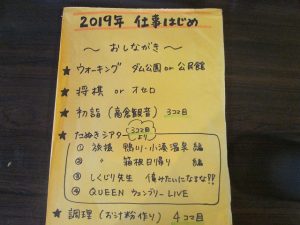 2019年 仕事はじめ
～ おしながき ～
★ ウォーキング ダム公園 or 公民館
★ 将棋 or オセロ
★ 初詣 (高倉観音) 3コマ目
★ たぬきシアター 3コマ目より
① 放旅 鴨川・小湊温泉 編
② 〃 箱根日帰り 編
③ しくじり先生 俺みたいになるな!!
④ QUEEN ウェンブリー LIVE
★ 調理 (お汁粉作り) 4コマ目